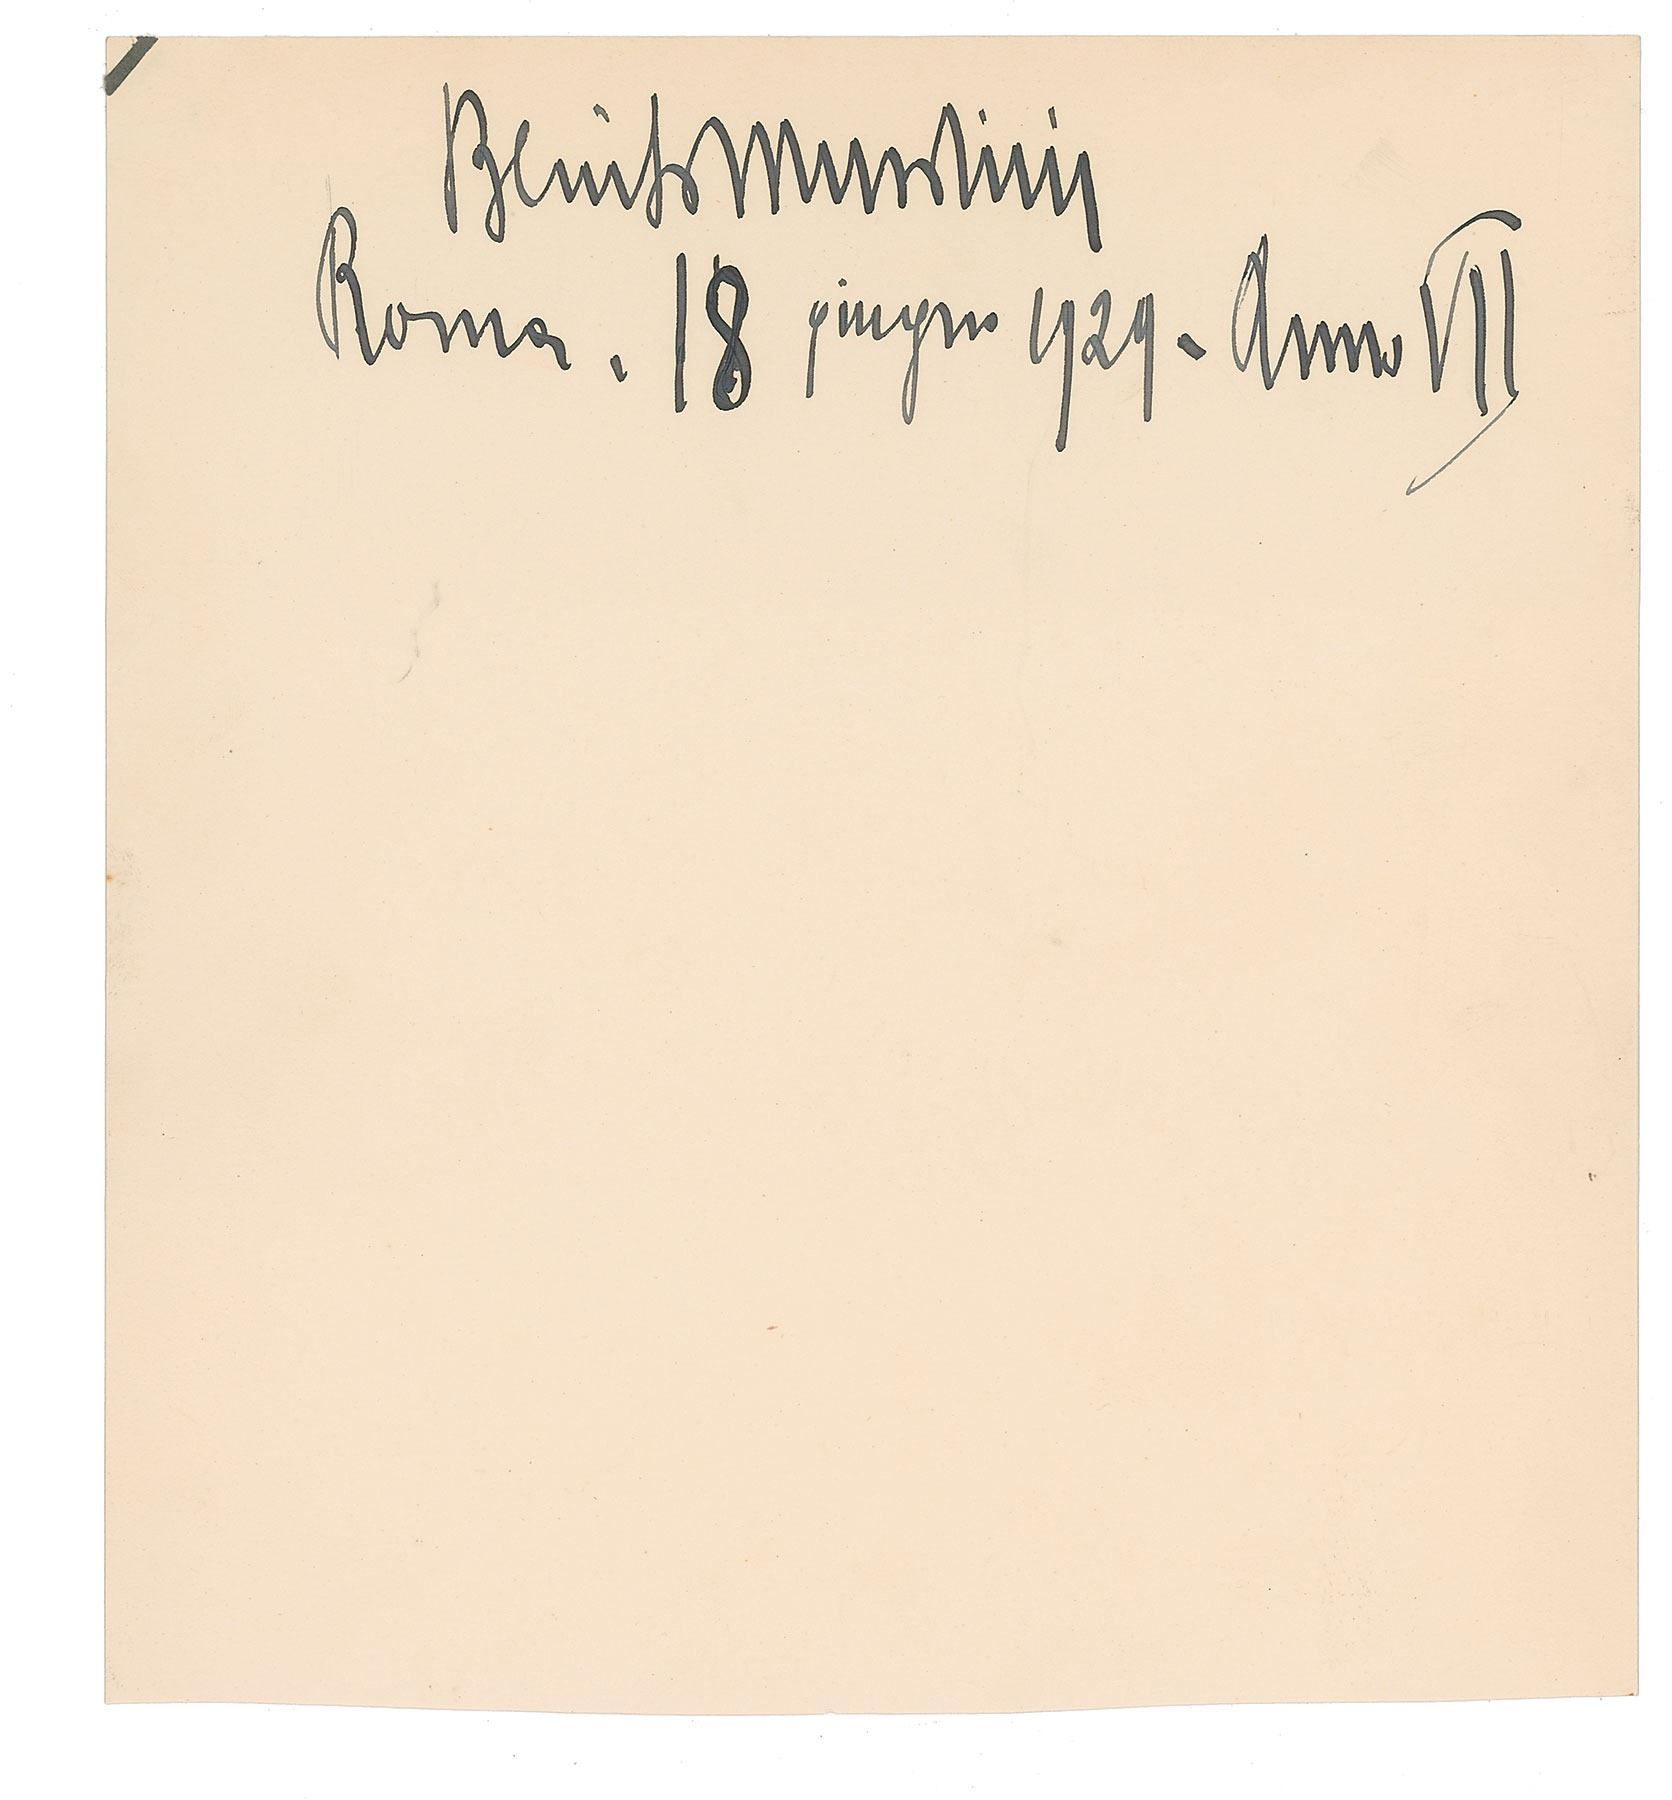 Benito Mussolini
Roma. 18 giugno 1929 - Anno VII